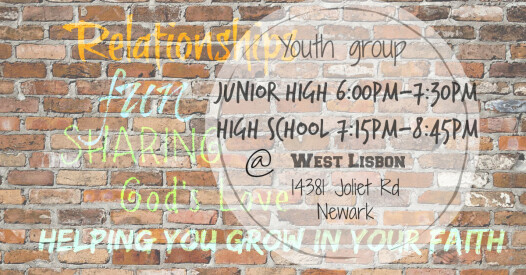 Relationships
fun
SHARING
God's Love
HELPING YOU GROW IN YOUR FAITH
Youth group
JUNIOR HIGH 6:00PM-7:30PM
HIGH SCHOOL 7:15PM-8:45PM
@ WEST LISBON
14381 Joliet Rd
Newark